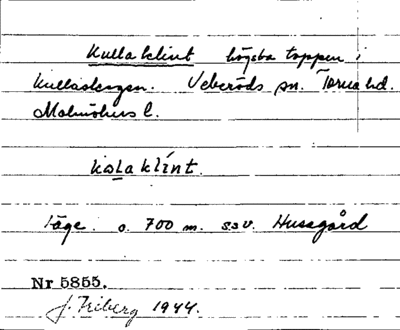 Kullaklint högsta toppen i
Kullaskogen. Veberöds sn. Torna hd.
Malmöhus l.
kȧlaklínt.
Läge: o. 700 m. ssv. Hussgård
Nr 5855.
J. Friberg 1944.